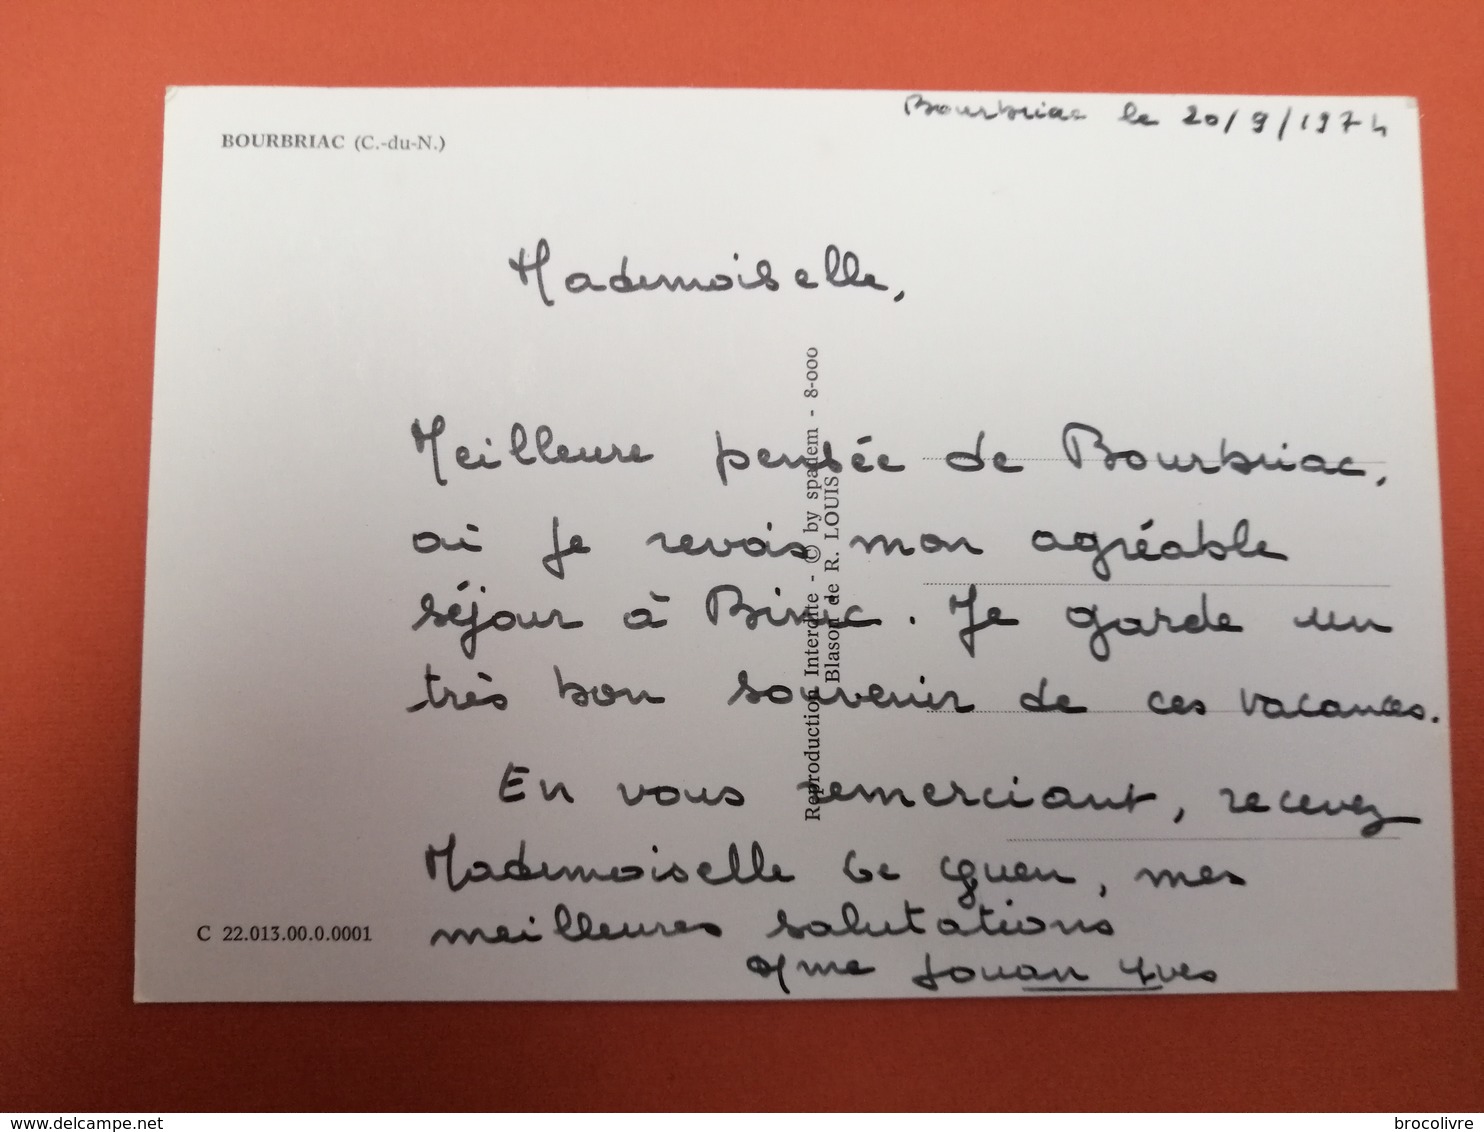 BOURBRIAC (C.-du-N.)
Bourbriac le 20/9/1974
Mademoiselle,
Meilleure pensée de Bourbriac,
où je revois mon agréable
séjour à Binic. Je garde un
très bon souvenir de ces vacances.
En vous remerciant, recevez
Mademoiselle Le Guen, mes
meilleures salutations
Mme Jouan Yves
Reproduction Interdite - © by spadem - 8-000
Blason de R. LOUIS
C 22.013.00.0.0001
delcampe.net
brocolivre